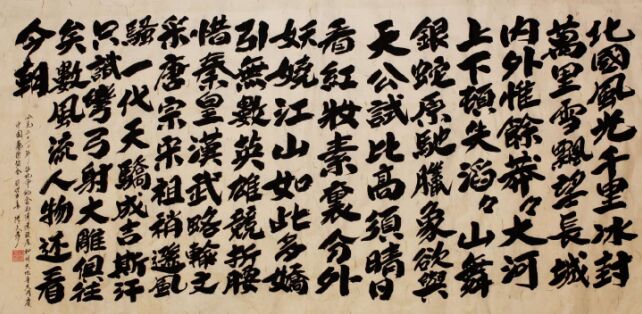 北國風光千里冰封
萬里雪飄望長城
内外惟餘莽々大河
上下頓失滔々山舞
銀蛇原馳臘象欲與
天公試比高須晴日
看紅妝素裹分外
妖嬈江山如此多嬌
引無數英雄競折腰
惜秦皇漢武略輸文
采唐宗宋祖稍遜風
騷一代天驕成吉斯汗
只識彎弓射大雕俱往
矣數風流人物还看
今朝